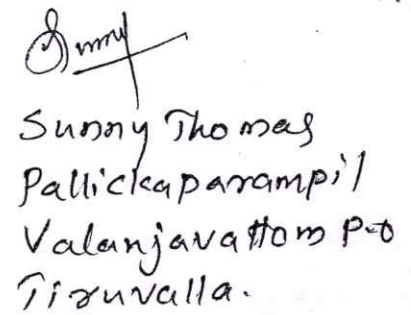 Sunny
Sunny Thomas
Pallickaparampil
Valanjavattom P.O
Tiruvalla.